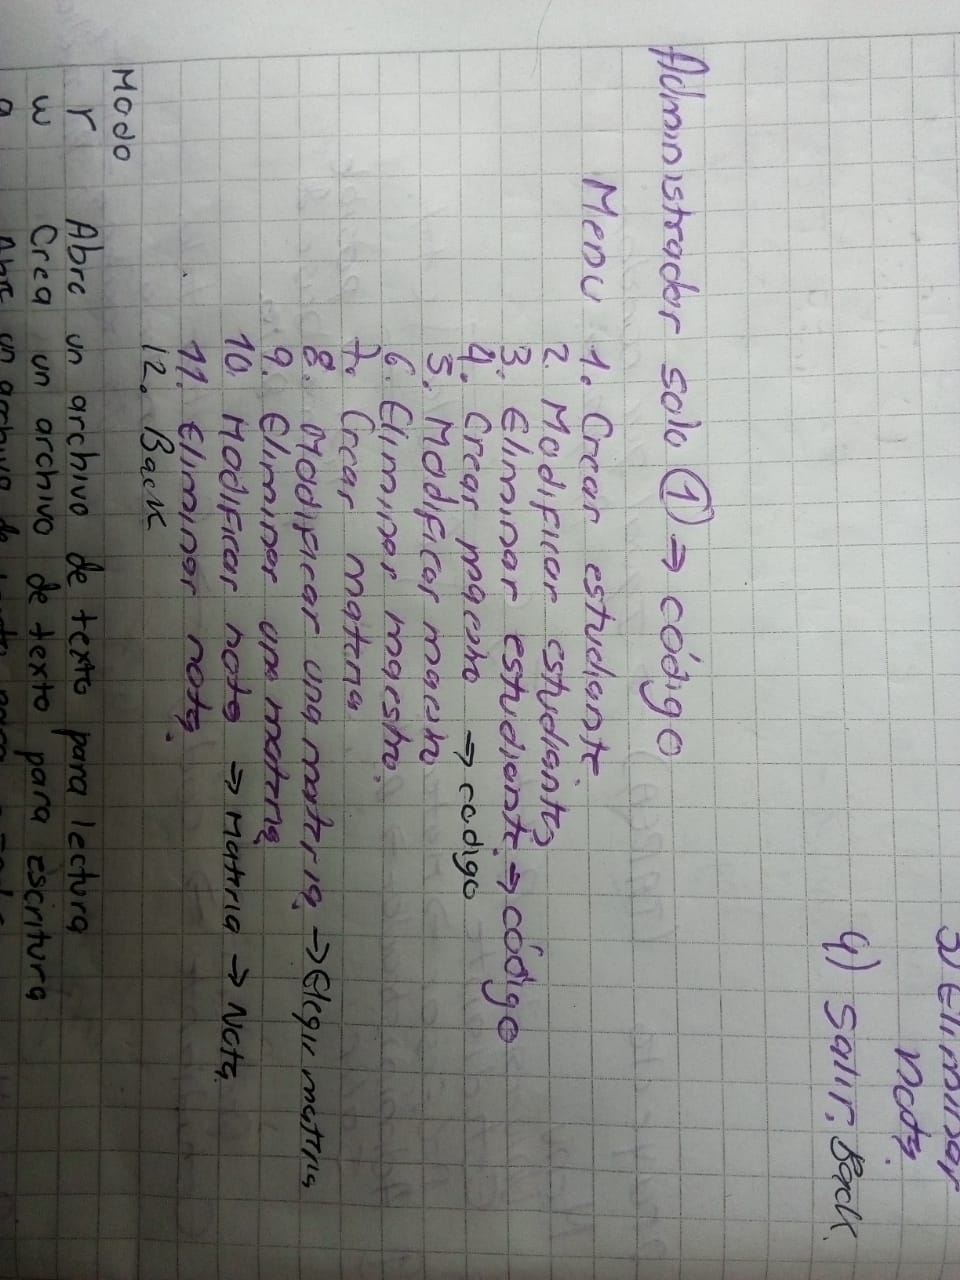 3) Eliminar
nota.
4) Salir. Back.
Administrador solo 1 → código
Menu 1. Crear estudiante.
2. Modificar estudiantes
3. Eliminar estudiante. → código
4. Crear maestro → codigo
5. Modificar maestro
6. Eliminar maestro.
7. Crear materia
8. Modificar una materia. → Elegir materia
9. Eliminar una materia
10. Modificar nota → Materia → Nota.
11. Eliminar nota.
12. Back
Modo
r Abre un archivo de texto para lectura
w Crea un archivo de texto para escritura
a Abre un archivo de texto para